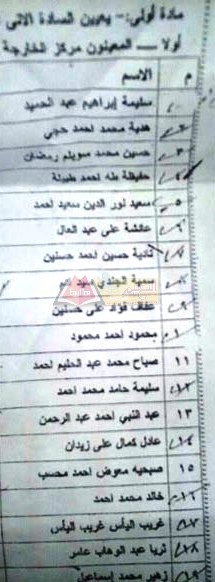 مادة أولى :- يعين السادة الاتى
أولا ــ المعينون مركز الخارجة
م الاسم
١ سليمة إبراهيم عبد الحميد
٢ هدية محمد احمد حجي
٣ حسين محمد سويلم رمضان
٤ حفيظة طه احمد
٥ سعيد نور الدين سعيد احمد
٦ عائشة على عبد العال
٧ نادية حسين احمد حسنين
٨ سمية الجندي سيد
٩ عفاف فؤاد على حسنين
١٠ محمود احمد محمود
١١ صباح محمد عبد الحليم احمد
١٢ سليمة حامد محمد احمد
١٣ عبد النبي احمد عبد الرحمن
١٤ عادل كمال على زيدان
١٥ صبحيه معوض احمد محسب
١٦ خالد محمد احمد
١٧ غريب اليأس غريب اليأس
١٨ ثريا عبد الوهاب عامر
١٩ زهير محمد إسماعيل